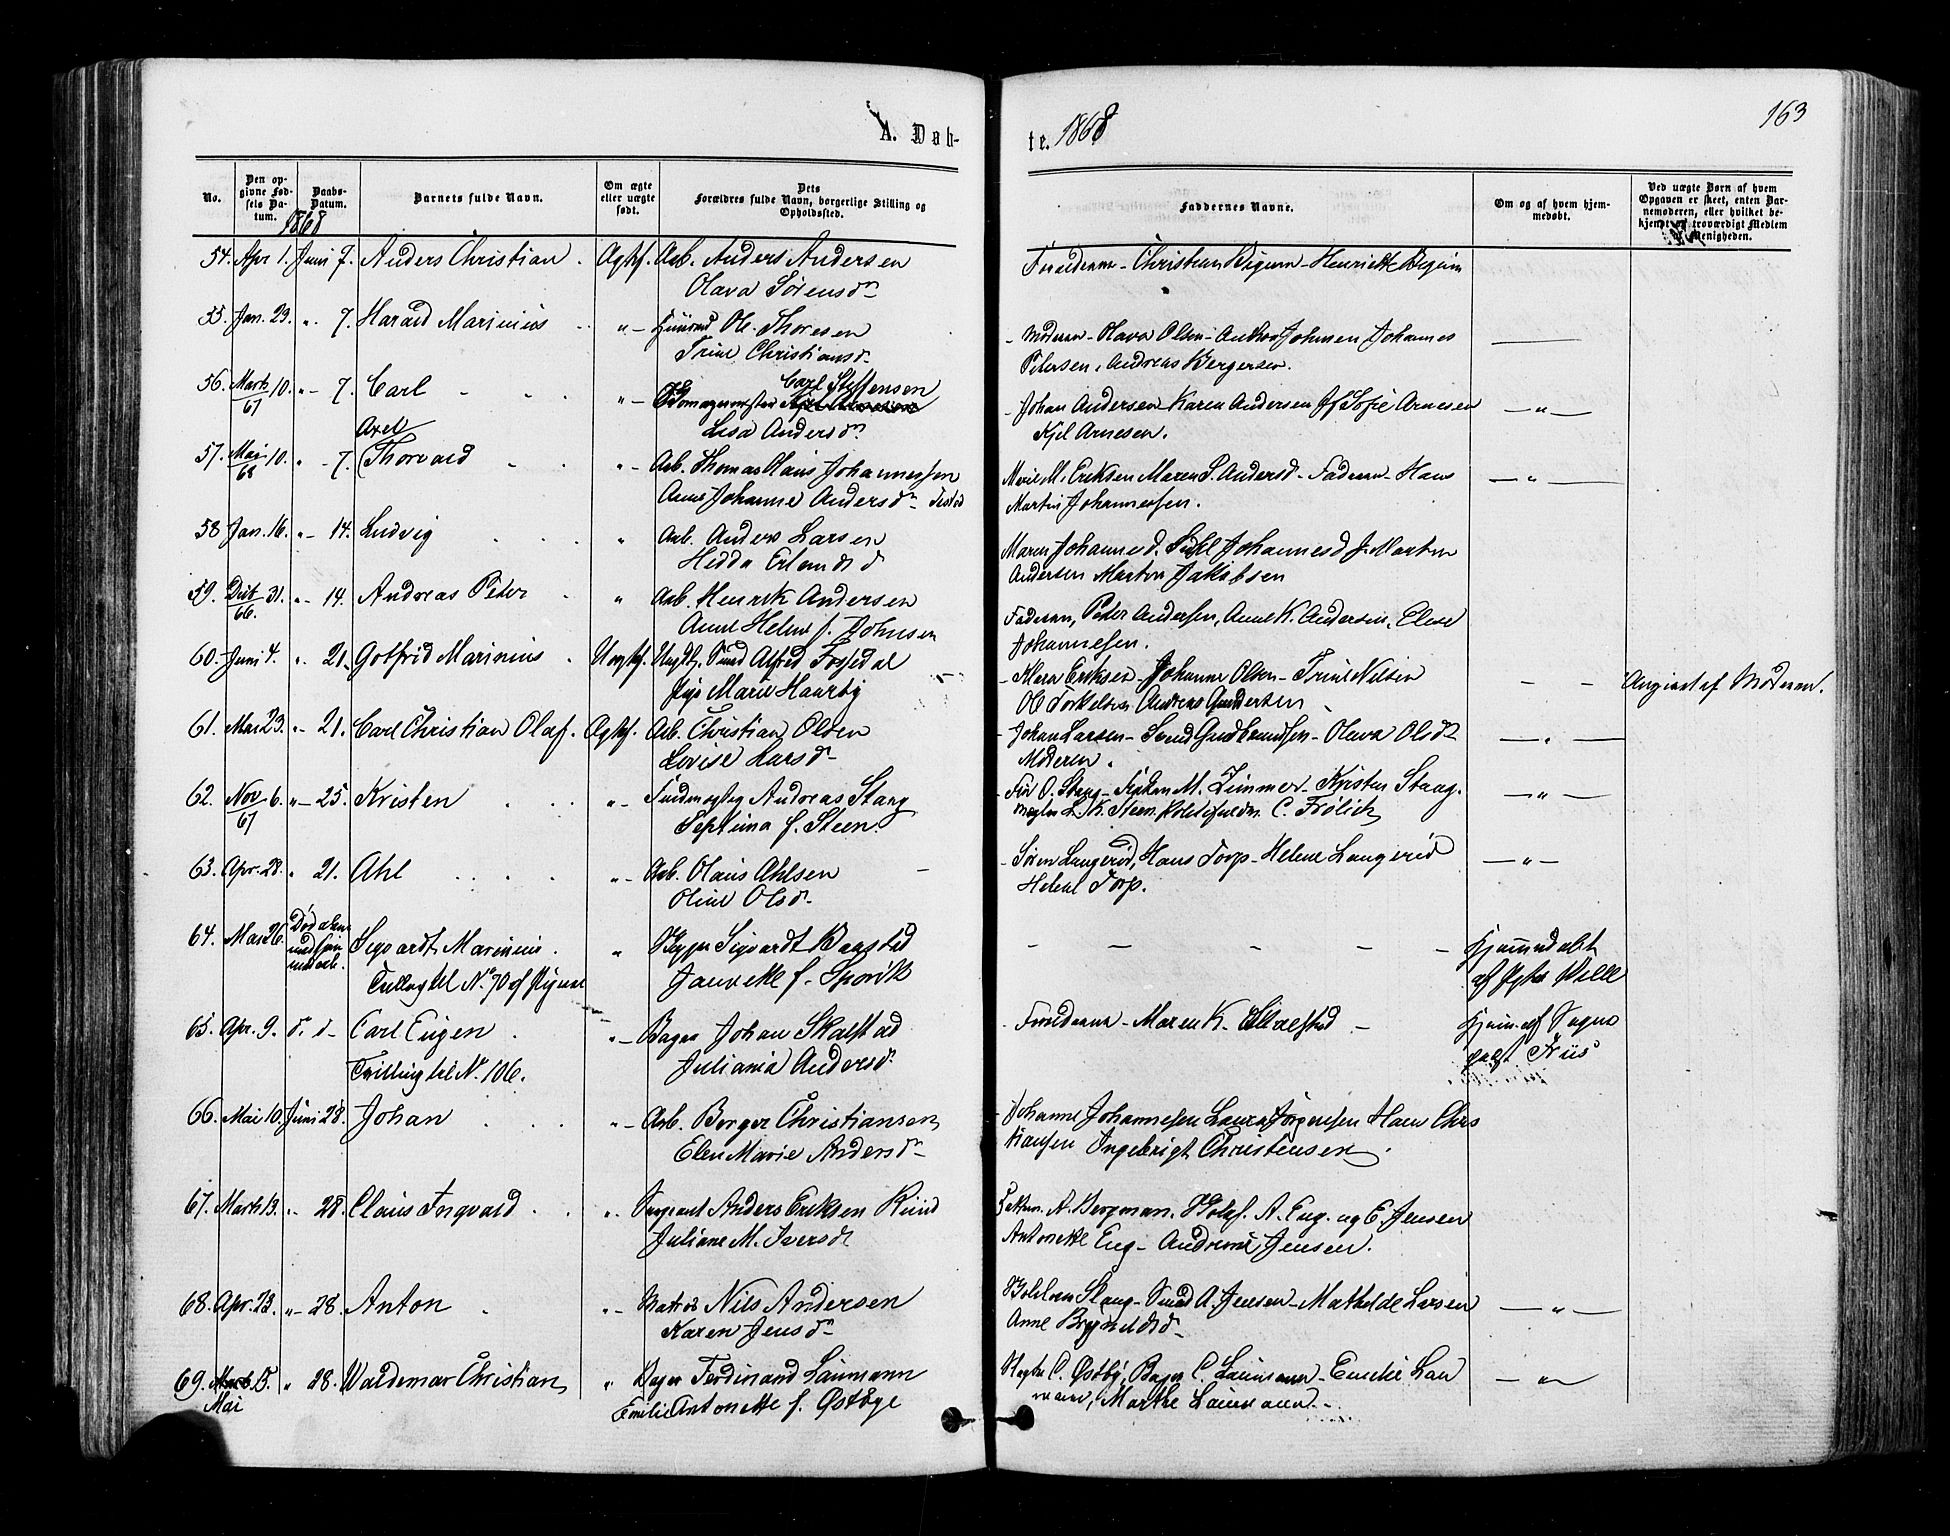 163
A. Døb-
te. 1868
No.
Den opgivne Fødsels Datum.
Daabs-Datum.
Barnets fulde Navn.
Om ægte eller uægte født.
Dets Forældres fulde Navn, borgerlige Stilling og Opholdssted.
Faddernes Navne.
Om og af hvem hjemmedøbt.
Ved uægte Børn af hvem Opgaven er skeet, enten Barnemoderen, eller hvilket bekjendt og troværdigt Medlem af Menigheden.
1868
54. Apr 1. Juni 7. Anders Christian . Ægtef. Arb. Anders Andersen
Olava Sørensdr
Forældrene - Christian Bigum - Henriette Bigum
55. Jan. 29. " 7. Harald Marinius " Ole Thoresen
Trine Christiansdr
Moderen - Olava Olsen - Johnsen Johannes
Petersen, Andreas Bergersen.
56. Marts 10. " 7. Carl " Carl Steffensen
67
Lisa Andersdr
Johan Andersen Karen Andersen Jf Sofie Arnesen - " -
Kjel Arnesen.
Axel
57. Mai 10. " 7. Thorvald " Arb. Thomas Hans Johannessen
68
Anne Johanne Andersdr
M. Eriksen Maren S. Andersd - Faderen Hans - " -
Martin Johannessen.
58 Jan. 16. " 14. Ludvig " Arb. Anders Larsen
Hedda Erlandsd
Maren Johannesd. Johannesd J. Marten
Andersen Marton Jakobsen
59. 31. " 14. Andreas Peter " Arb. Henrik Andersen
66.
Anne Helene f. Johnsen
Faderen, Peter Andersen, Anne K. Andersen, Elise
Johannesen.
60. Juni 4. " 21. Gotfrid Marinius . Uægtef. Alfred Fossedal
Marie Haarby
Eriksen - Johanne Olsen - Trine Nilsen - - Angivet af Moderen.
Ole Torkelsen Andreas Gundersen
61. 23. " 21. Carl Christian Olaf. Ægtef. Arb. Christian Olsen
Lovise Larsdr
Johan Larsen - Svend Gudbrandsen - Olava Olsdr - " -
Moderen.
62. Nov 6. " 25. Kristen " Andreas Stang
67
Septima f. Steen.
O. Stang - M. Zimmer - Kristen Stang. - " -
K. Steen, C. Frølich
63. Apr. 28. " 21. Ahl " Arb. Olaus Ahlsen
Oline Olsdr
Søren Langerød, Hans Torp - Helene Langerød - " -
Helene Torp.
64. 26. Sigvardt Marinius . " Sigvardt Baastad
Tvilling til No. 70 af
Janette f. Sporill
- - - - - Hjemmedøbt
af
65. Apr. 9. d. d - Carl Eugen . " Bager Johan Skalstad
Tvilling til No. 106.
Juliania Andersdr
Forældrene - Maren K. - Hjem. af Sogne
præst Friis
66. Mai 10. Juni 28. Johan " Arb. Borger Christiansen
Elen Marie Andersdr
Johanne Johannesen Laura Jørgensen Hans Chris
tiansen Ingebrigt Christensen.
67. Marts 13. " 28. Claus Ingvald . . " Sergeant Anders Eriksen Rüud
Juliane M. Iversdr
A. Bergman. A. Eng. og E. Jensen
Antonette Eng - Andrine Jensen.
68. Apr. 23. " 28. Anton . " Matros Nils Andersen
Karen Jensdr
Stang - A. Jensen - Mathilde Larsen - " -
Anne Bryn
69. Marts 15. " 28. Waldemar Christian " Bager Ferdinand Laumann
Mai
Emilie Antonette f. Østbye
C. Østby, Bager C. Laumann - Emilie Lau - " -
mann, Marthe Laumann.